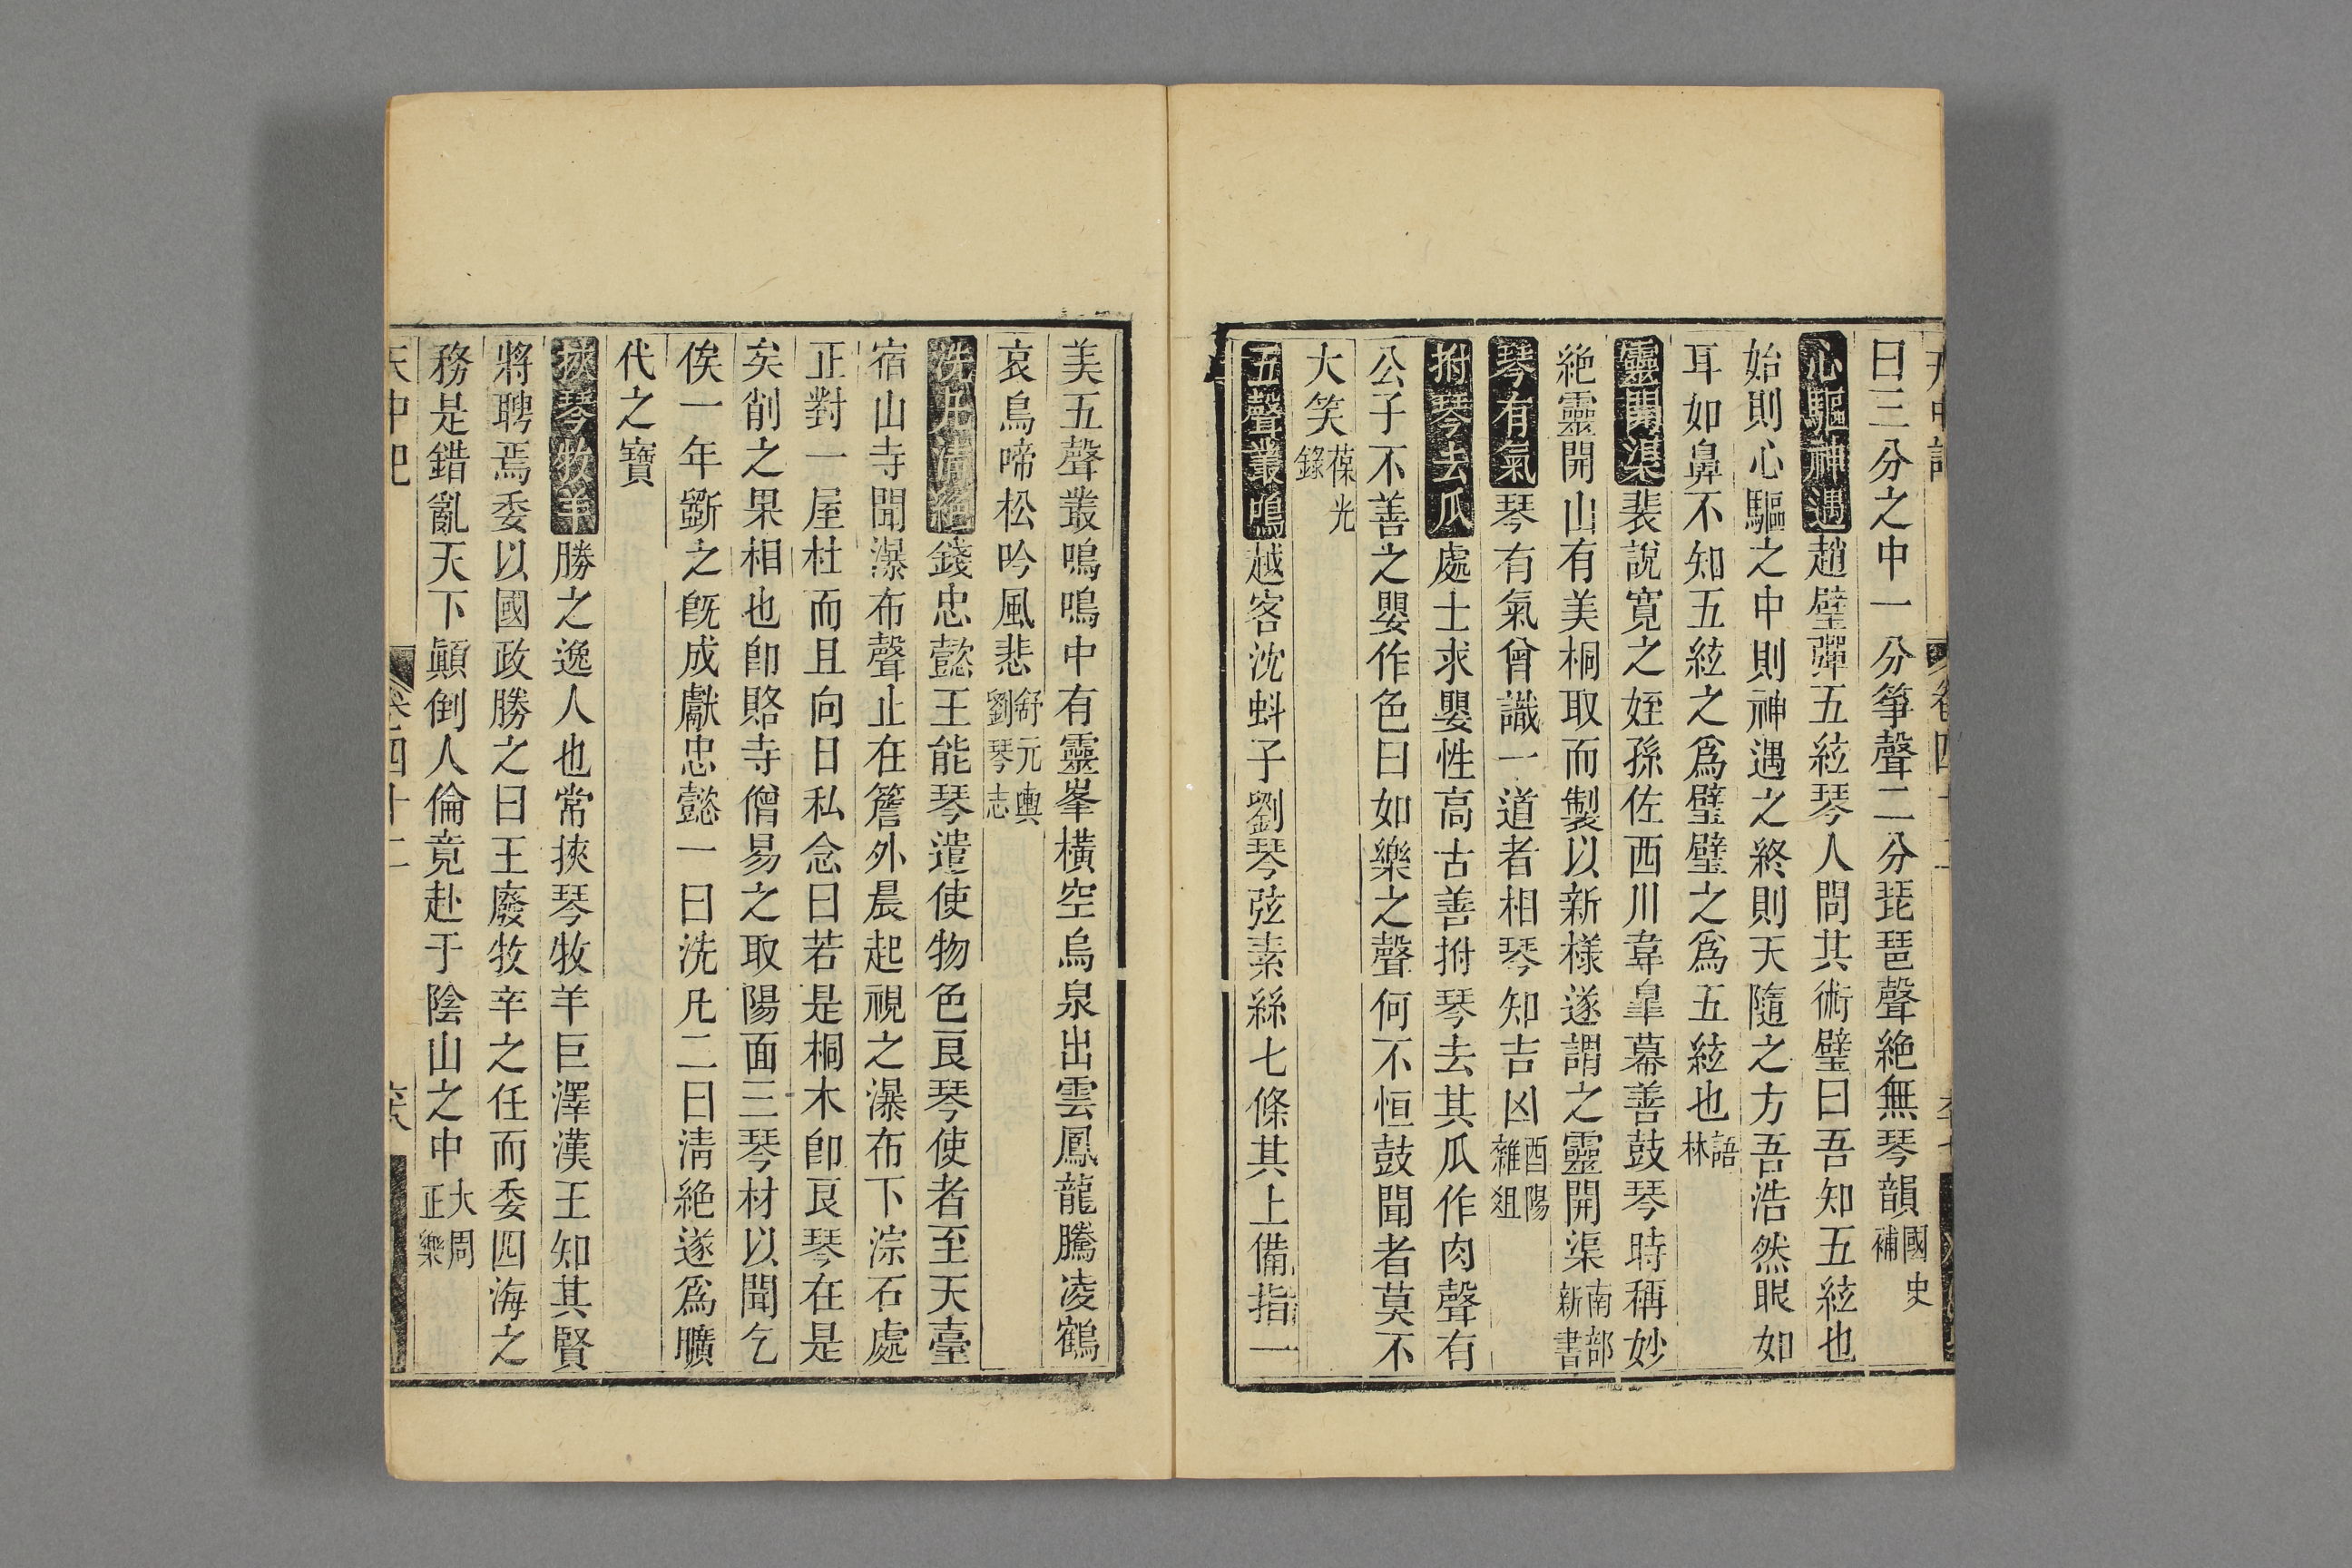 曰三分之中一分箏聲二分琵琶聲絶無琴韻國史補
心驅神遇趙璧彈五絃琴人問其術璧曰吾知五絃也
始則心驅之中則神遇之終則天隨之方吾浩然眼如
耳如鼻不知五絃之爲璧璧之爲五絃也語林
靈開渠裴說寛之姪孫佐西川韋臯幕善鼓琴時稱妙
絶靈開山有美桐取而製以新樣遂謂之靈開渠南部新書
琴有氣琴有氣曾識一道者相琴知吉凶酉陽雜爼
拊琴去瓜處士求嬰性高古善拊琴去其瓜作肉聲有
公子不善之嬰作色曰如樂之聲何不恒鼓聞者莫不
大笑葆光錄
五聲叢鳴越客沈蚪子劉琴弦素絲七條其上備指一
美五聲叢鳴鳴中有靈峯橫空烏泉出雲鳳龍騰凌鶴
哀烏啼松吟風悲舒元輿劉琴志
洗凡清絕錢忠懿王能琴遣使物色良琴使者至天臺
宿山寺聞瀑布聲止在簷外晨起視之瀑布下淙石處
正對一屋柱而且向日私念曰若是桐木卽良琴在是
矣削之果桐也卽賂寺僧易之取陽面三琴材以聞乞
俟一年斵之旣成獻忠懿一曰洗凡二曰清絶遂爲曠
代之寶
挾琴牧羊勝之逸人也常挾琴牧羊巨澤漢王知其賢
將聘焉委以國政勝之曰王廢牧辛之任而委四海之
務是錯亂天下顚倒人倫竟赴于陰山之中大周正樂
天中記 卷四十二